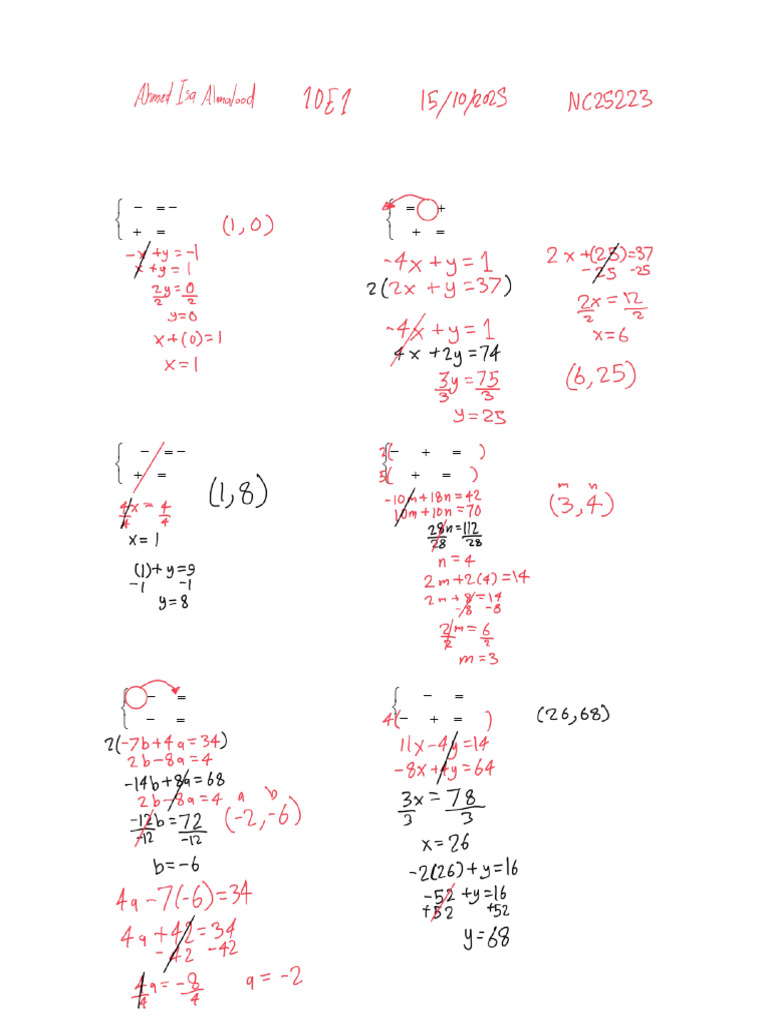 Ahmed Isa Almalood 10E1 15/10/2025 NC25223
{ − = −
+ =
(1,0)
-x+y=-1
x+y=1
2y=0
2 2
y=0
x+(0)=1
x=1
{ = +
+ =
-4x+y=1
2(2x+y=37)
-4x+y=1
4x+2y=74
3y=75
3 3
y=25
2x+(25)=37
-25 -25
2x=12
2 2
x=6
(6,25)
{ − = −
+ =
(1,8)
4x=4
4 4
x=1
(1)+y=9
-1 -1
y=8
2( − + = )
5( + = )
-10m+18n=42
10m+10n=70
28n=112
28 28
n=4
2m+2(4)=14
2m+8=14
-8 -8
2m=6
2 2
m=3
m n
(3,4)
{ − =
− =
2(-7b+4a=34)
2b-8a=4
-14b+8a=68
2b-8a=4
-12b=72
-12 -12
b=-6
a b
(-2,-6)
4a-7(-6)=34
4a+42=34
-42 -42
4a=-8
4 4
a=-2
{ − =
4( − + = )
(26,68)
11x-4y=14
-8x+4y=64
3x=78
3 3
x=26
-2(26)+y=16
-52+y=16
+52 +52
y=68